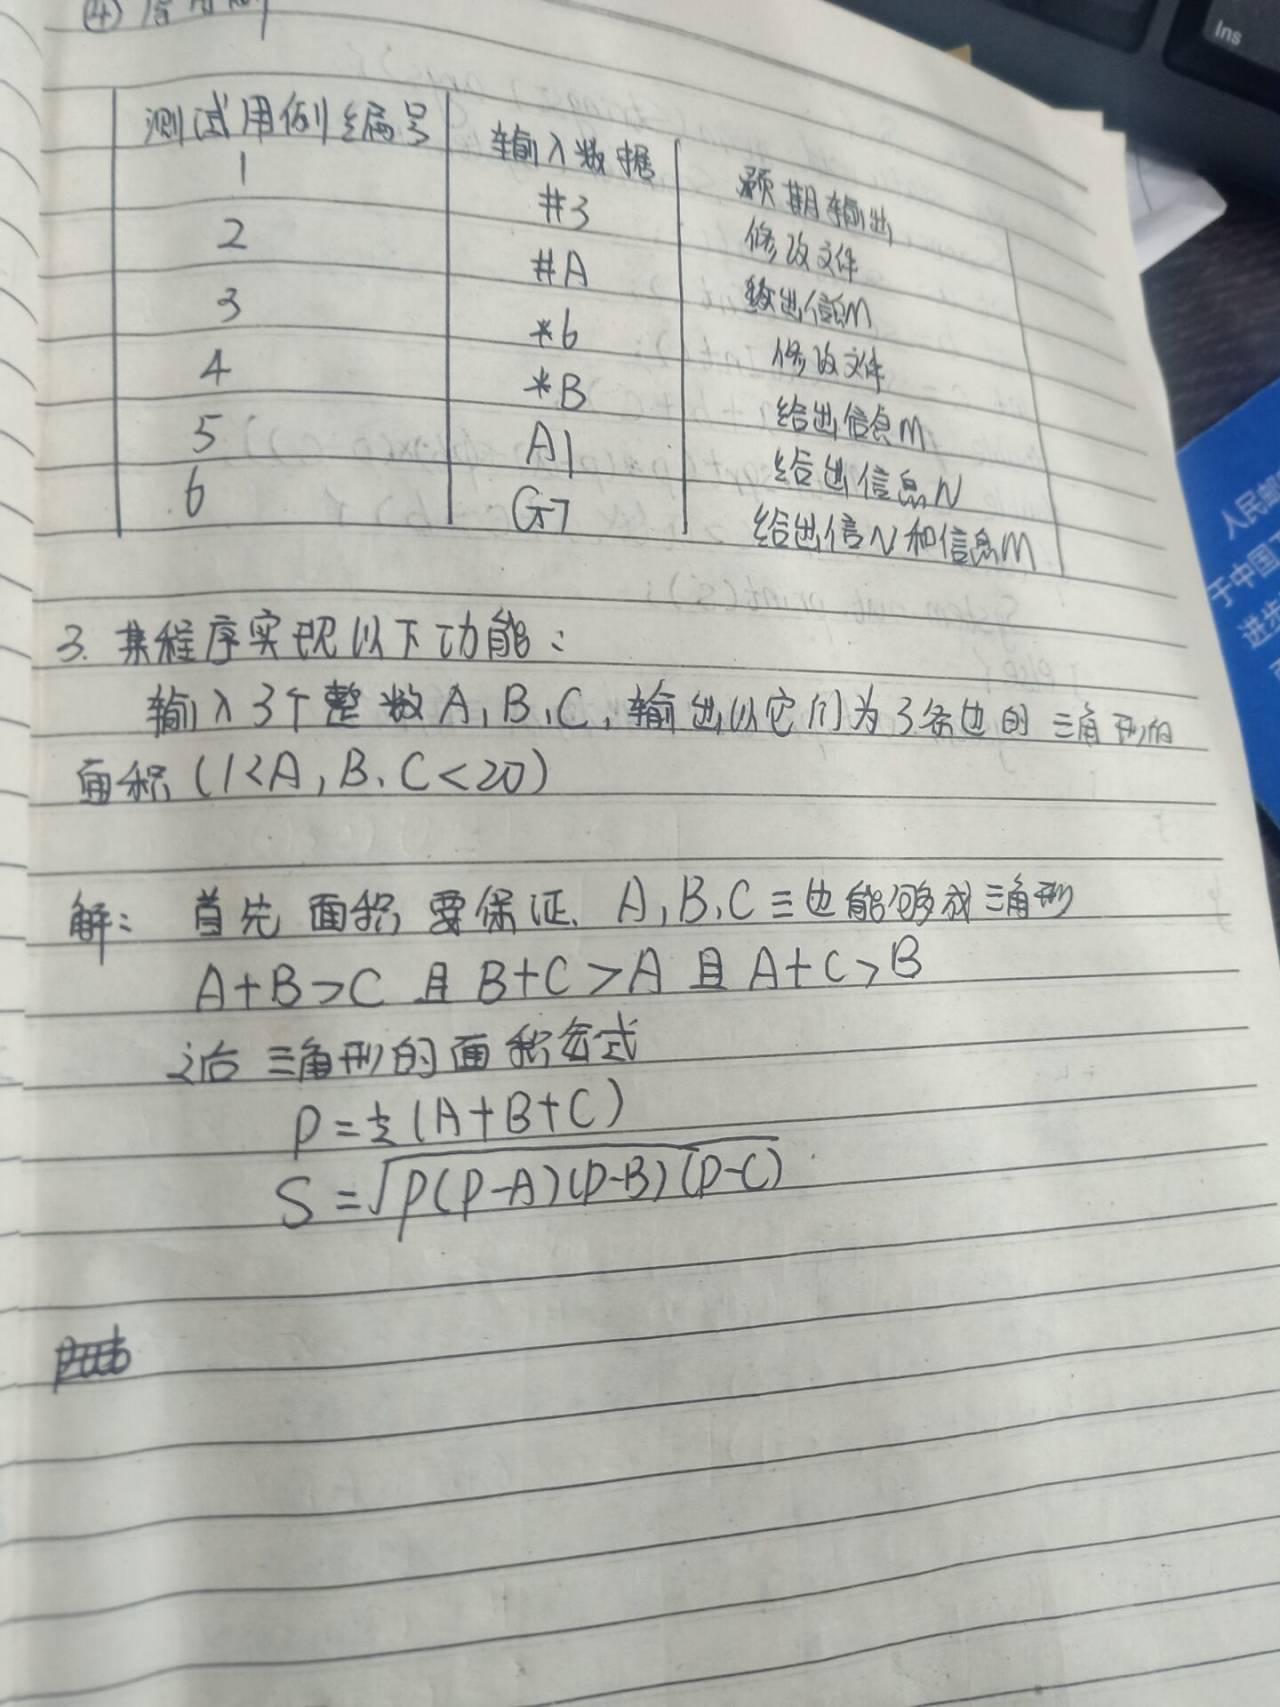 测试用例编号 输入数据 预期输出
1 #3 修改文件
2 #A 给出信息M
3 *6 修改文件
4 *B 给出信息M
5 A1 给出信息N
6 G7 给出信N和信息M
3. 某程序实现以下功能:
输入3个整数A,B,C,输出以它们为3条边的三角形的
面积(1<A,B,C<20)
解: 首先面积要保证、A,B,C三边能够成三角形
A+B>C 且 B+C>A 且 A+C>B
之后 三角形的面积公式
P=½(A+B+C)
S=√P(P-A)(P-B)(P-C)
Ins
人民邮
于中国
进步